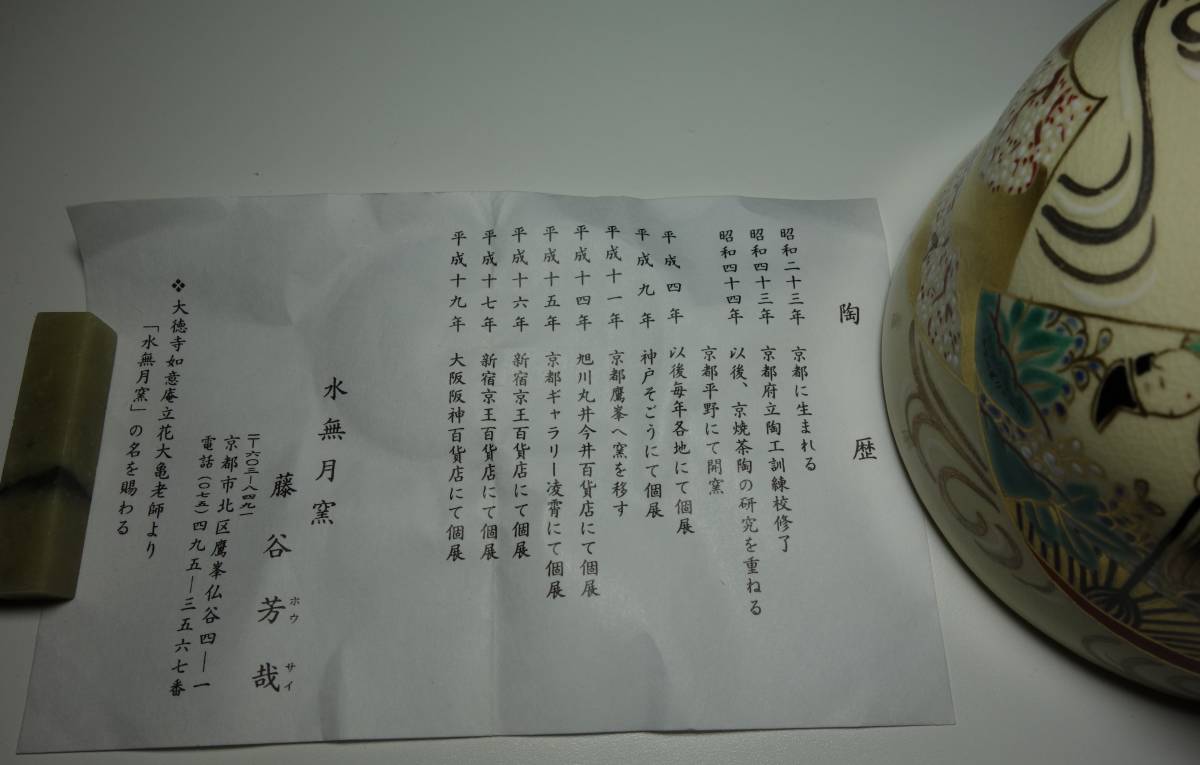 陶歴
昭和二十三年 京都に生まれる
昭和四十三年 京都府立陶工訓練校修了
以後、京焼茶陶の研究を重ねる
昭和四十四年 京都平野にて開窯
平成四年 以後毎年各地にて個展
平成九年 神戸そごうにて個展
平成十一年 京都鷹峯へ窯を移す
平成十四年 旭川丸井今井百貨店にて個展
平成十五年 京都ギャラリー凌霄にて個展
平成十六年 新宿京王百貨店にて個展
平成十七年 新宿京王百貨店にて個展
平成十九年 大阪阪神百貨店にて個展
水無月窯
藤谷芳哉
ホウサイ
〒六〇三―八四九一
京都市北区鷹峯仏谷四―一
電話(〇七五)四九五―三五六七番
❖大徳寺如意庵立花大亀老師より
「水無月窯」の名を賜わる